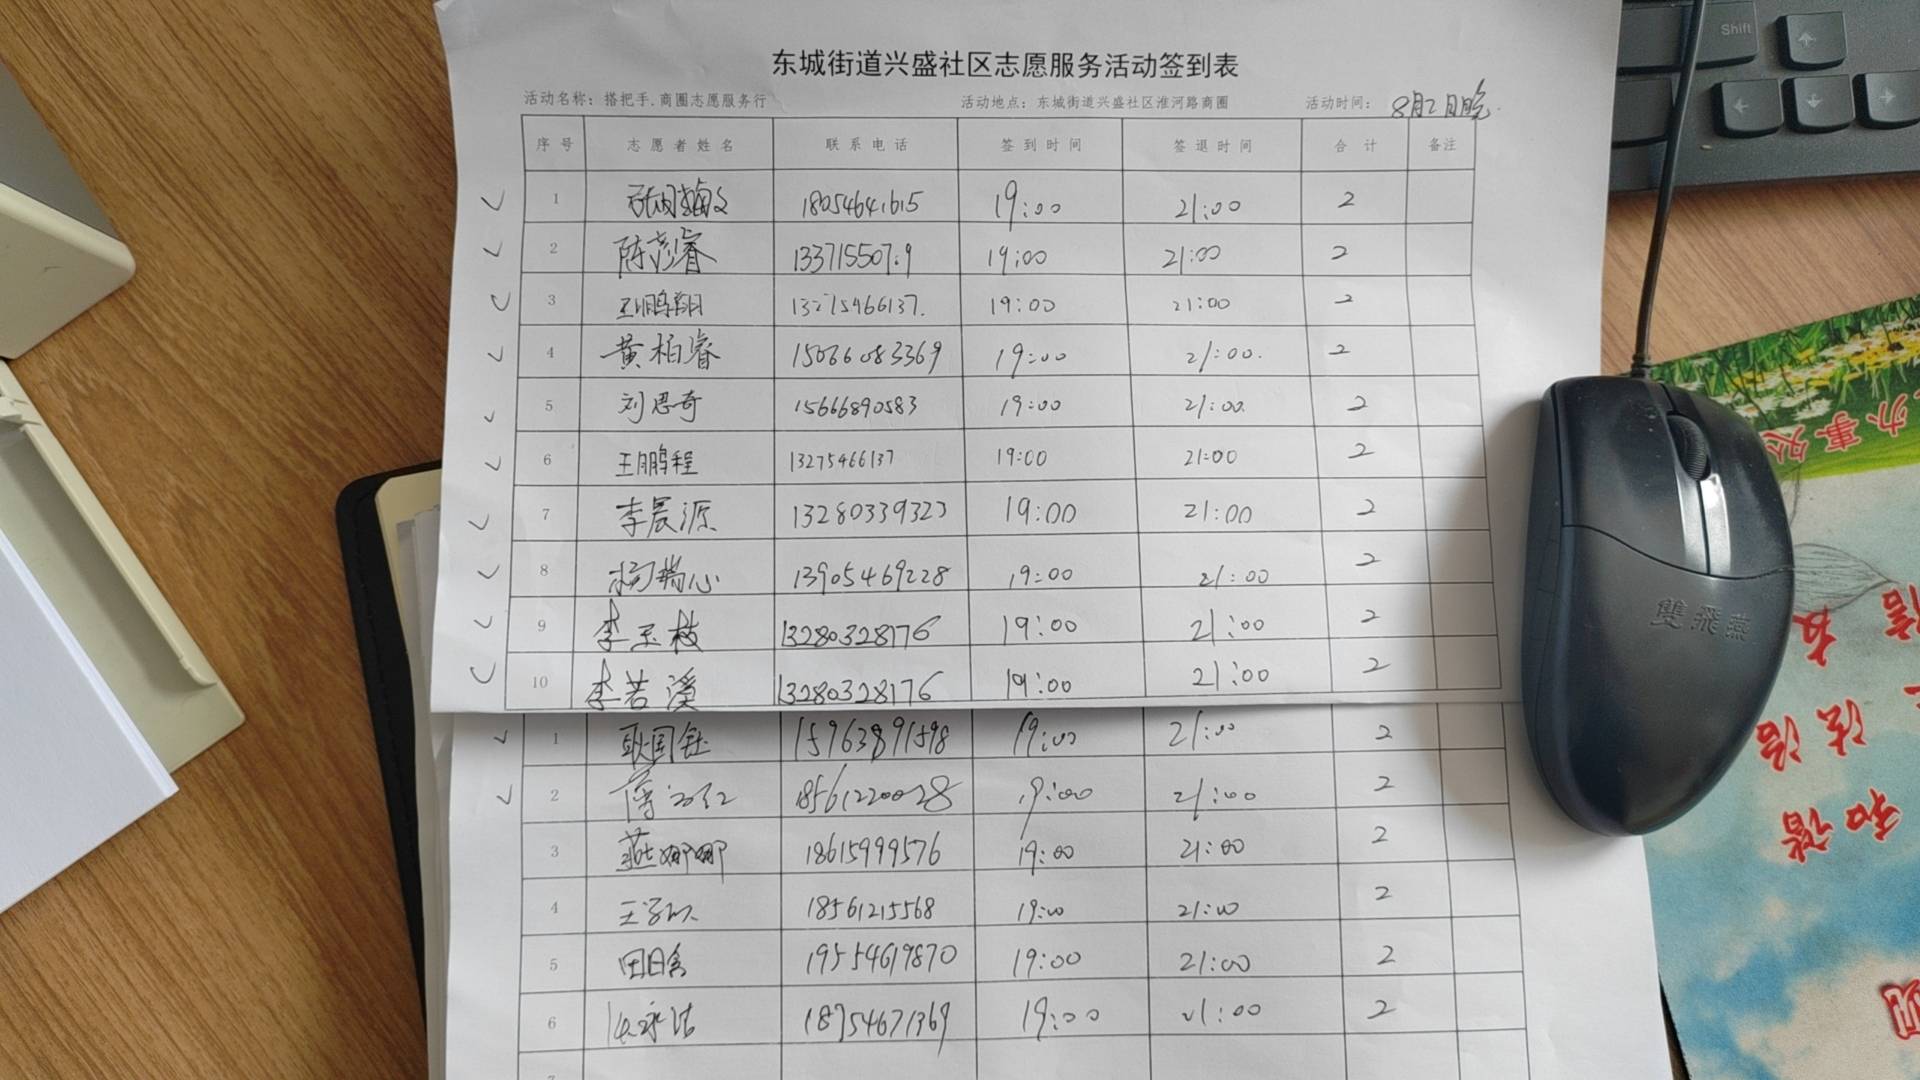 东城街道兴盛社区志愿服务活动签到表
活动名称：搭把手.商圈志愿服务行 活动地点：东城街道兴盛社区淮河路商圈 活动时间： 8月2日晚
序号 志愿者姓名 联系电话 签到时间 签退时间 合计 备注
1 18054641615 19:00 21:00 2
2 陈彦睿 19:00 21:00 2
3 王鹏翔 13275466137 19:00 21:00 2
4 黄柏睿 15066083369 19:00 21:00 2
5 刘思奇 15666890583 19:00 21:00 2
6 王鹏程 13275466137 19:00 21:00 2
7 李晨源 13280339323 19:00 21:00 2
8 杨瑞心 13905469228 19:00 21:00 2
9 李玉枝 13280328176 19:00 21:00 2
10 李若溪 13280328176 19:00 21:00 2
1 耿国钰 15963891598 19:00 21:00 2
2 18561220028 19:00 21:00 2
3 燕娜娜 18615999576 19:00 21:00 2
4 18561215568 19:00 21:00 2
5 田日含 19554619870 19:00 21:00 2
6 18754671369 19:00 21:00 2
Shift
雙飛燕
办事处
和谐
法治